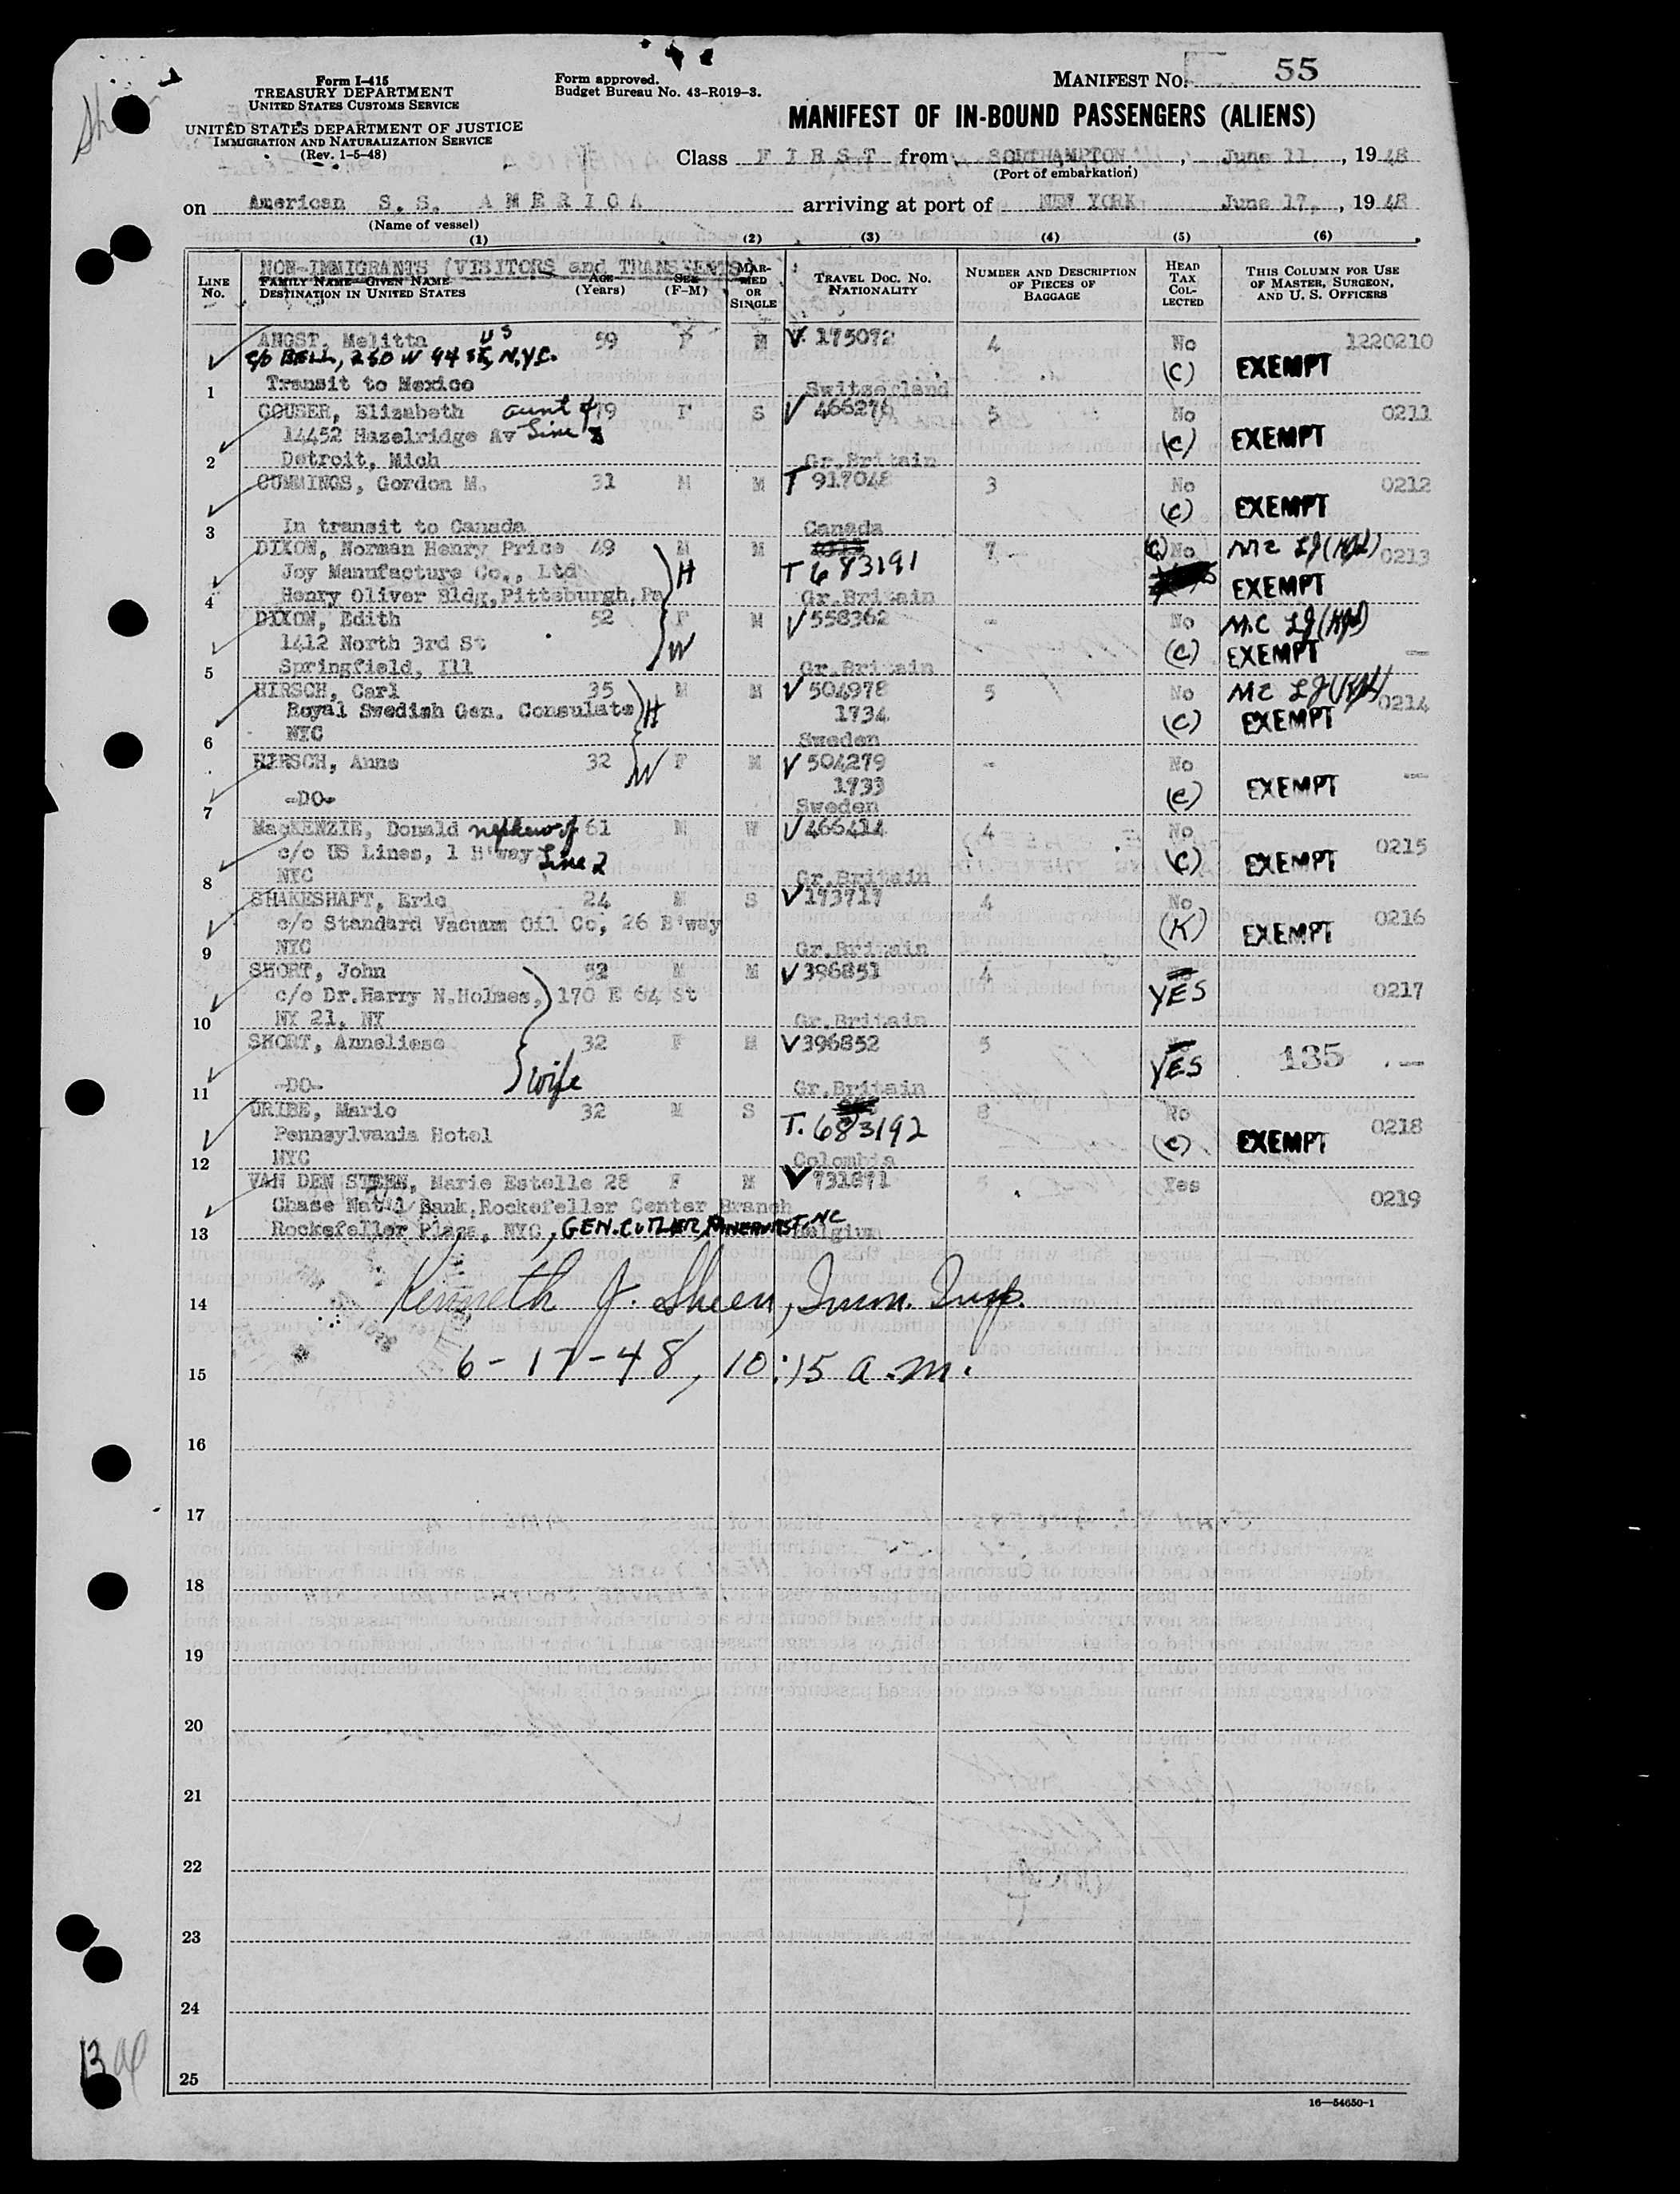 Form I-415
TREASURY DEPARTMENT
UNITED STATES CUSTOMS SERVICE
UNITED STATES DEPARTMENT OF JUSTICE
IMMIGRATION AND NATURALIZATION SERVICE
(Rev. 1-5-48)
Form approved.
Budget Bureau No. 43-R019-3.
MANIFEST NO. 55
MANIFEST OF IN-BOUND PASSENGERS (ALIENS)
Class FIRST from SOUTHAMPTON, June 11, 1948
(Port of embarkation)
on American S. S. AMERICA arriving at port of NEW YORK June 17, 1948
(Name of vessel)
(1) (2) (3) (4) (5) (6)
NON-IMMIGRANTS (VISITORS and TRANSIENTS)
LINE NO. FAMILY NAME—GIVEN NAME DESTINATION IN UNITED STATES AGE (Years) SEX (F-M) MARRIED OR SINGLE TRAVEL DOC. NO. NATIONALITY NUMBER AND DESCRIPTION OF PIECES OF BAGGAGE HEAD TAX COLLECTED THIS COLUMN FOR USE OF MASTER, SURGEON, AND U. S. OFFICERS
ANGST, Melitta US 59 F M V 175072 4 No 1220210
c/o BELL, 260 W 94 St, N.Y.C. (C) EXEMPT
1 Transit to Mexico Switzerland
COUSER, Elizabeth aunt of 79 F S V 466276 5 No 0211
14452 Hazelridge Av Line 8 (C) EXEMPT
2 Detroit, Mich Gr.Britain
CUMMINGS, Gordon M. 31 M M T 917048 3 No 0212
(C) EXEMPT
3 In transit to Canada Canada
DIXON, Norman Henry Price 49 M M 7 (C) No 0213
Joy Manufacture Co., Ltd H T 683191
4 Henry Oliver Bldg, Pittsburgh, Pa Gr.Britain EXEMPT
DIXON, Edith 52 F M V 558362 - No
1412 North 3rd St W (C) EXEMPT —
5 Springfield, Ill Gr.Britain
HIRSCH, Carl 35 M M V 504978 5 No 0214
Royal Swedish Gen. Consulate H 1734 (C) EXEMPT
6 NYC Sweden
HIRSCH, Anne 32 W F M V 504279 - No —
1733 (C) EXEMPT
7 -DO- Sweden
MacKENZIE, Donald nephew of 61 M W V 466414 4 No 0215
c/o US Lines, 1 B'way Line 2 (C) EXEMPT
8 NYC Gr.Britain
SHAKESHAFT, Eric 24 M S V 173717 4 No 0216
c/o Standard Vacuum Oil Co, 26 B'way (K) EXEMPT
9 NYC Gr.Britain
SHORT, John 52 M M V 396851 4 No 0217
c/o Dr.Harry N.Holmes, 170 E 64 St YES
10 NY 21, NY Gr.Britain
SHORT, Anneliese 32 F M V 396852 5 135 —
wife YES
11 -DO- Gr.Britain
URIBE, Mario 32 M S 8 No 0218
Pennsylvania Hotel T. 683192 (C) EXEMPT
12 NYC Colombia
VAN DEN STEEN, Marie Estelle 28 F M V 731871 5 Yes 0219
Chase Nat'l Bank, Rockefeller Center Branch
13 Rockefeller Plaza, NYC, GEN. CUTLER, PINEHURST, NC Belgium
14 Kenneth J. Sheen, Imm. Insp.
15 6-17-48, 10:15 a.m.
16
17
18
19
20
21
22
23
24
25
16—54650-1
13